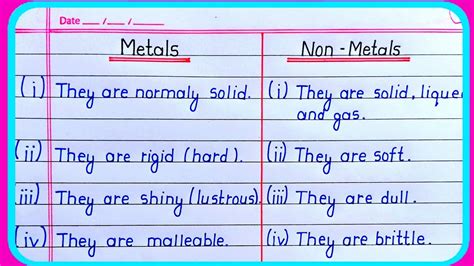 Date __/__/__
Metals
Non-Metals
(i) They are normaly solid.
(i) They are solid, lique
and gas.
(ii) They are rigid (hard).
(ii) They are soft.
iii) They are shiny (lustrous).
(iii) They are dull.
(iv) They are malleable.
(iv) They are brittle.